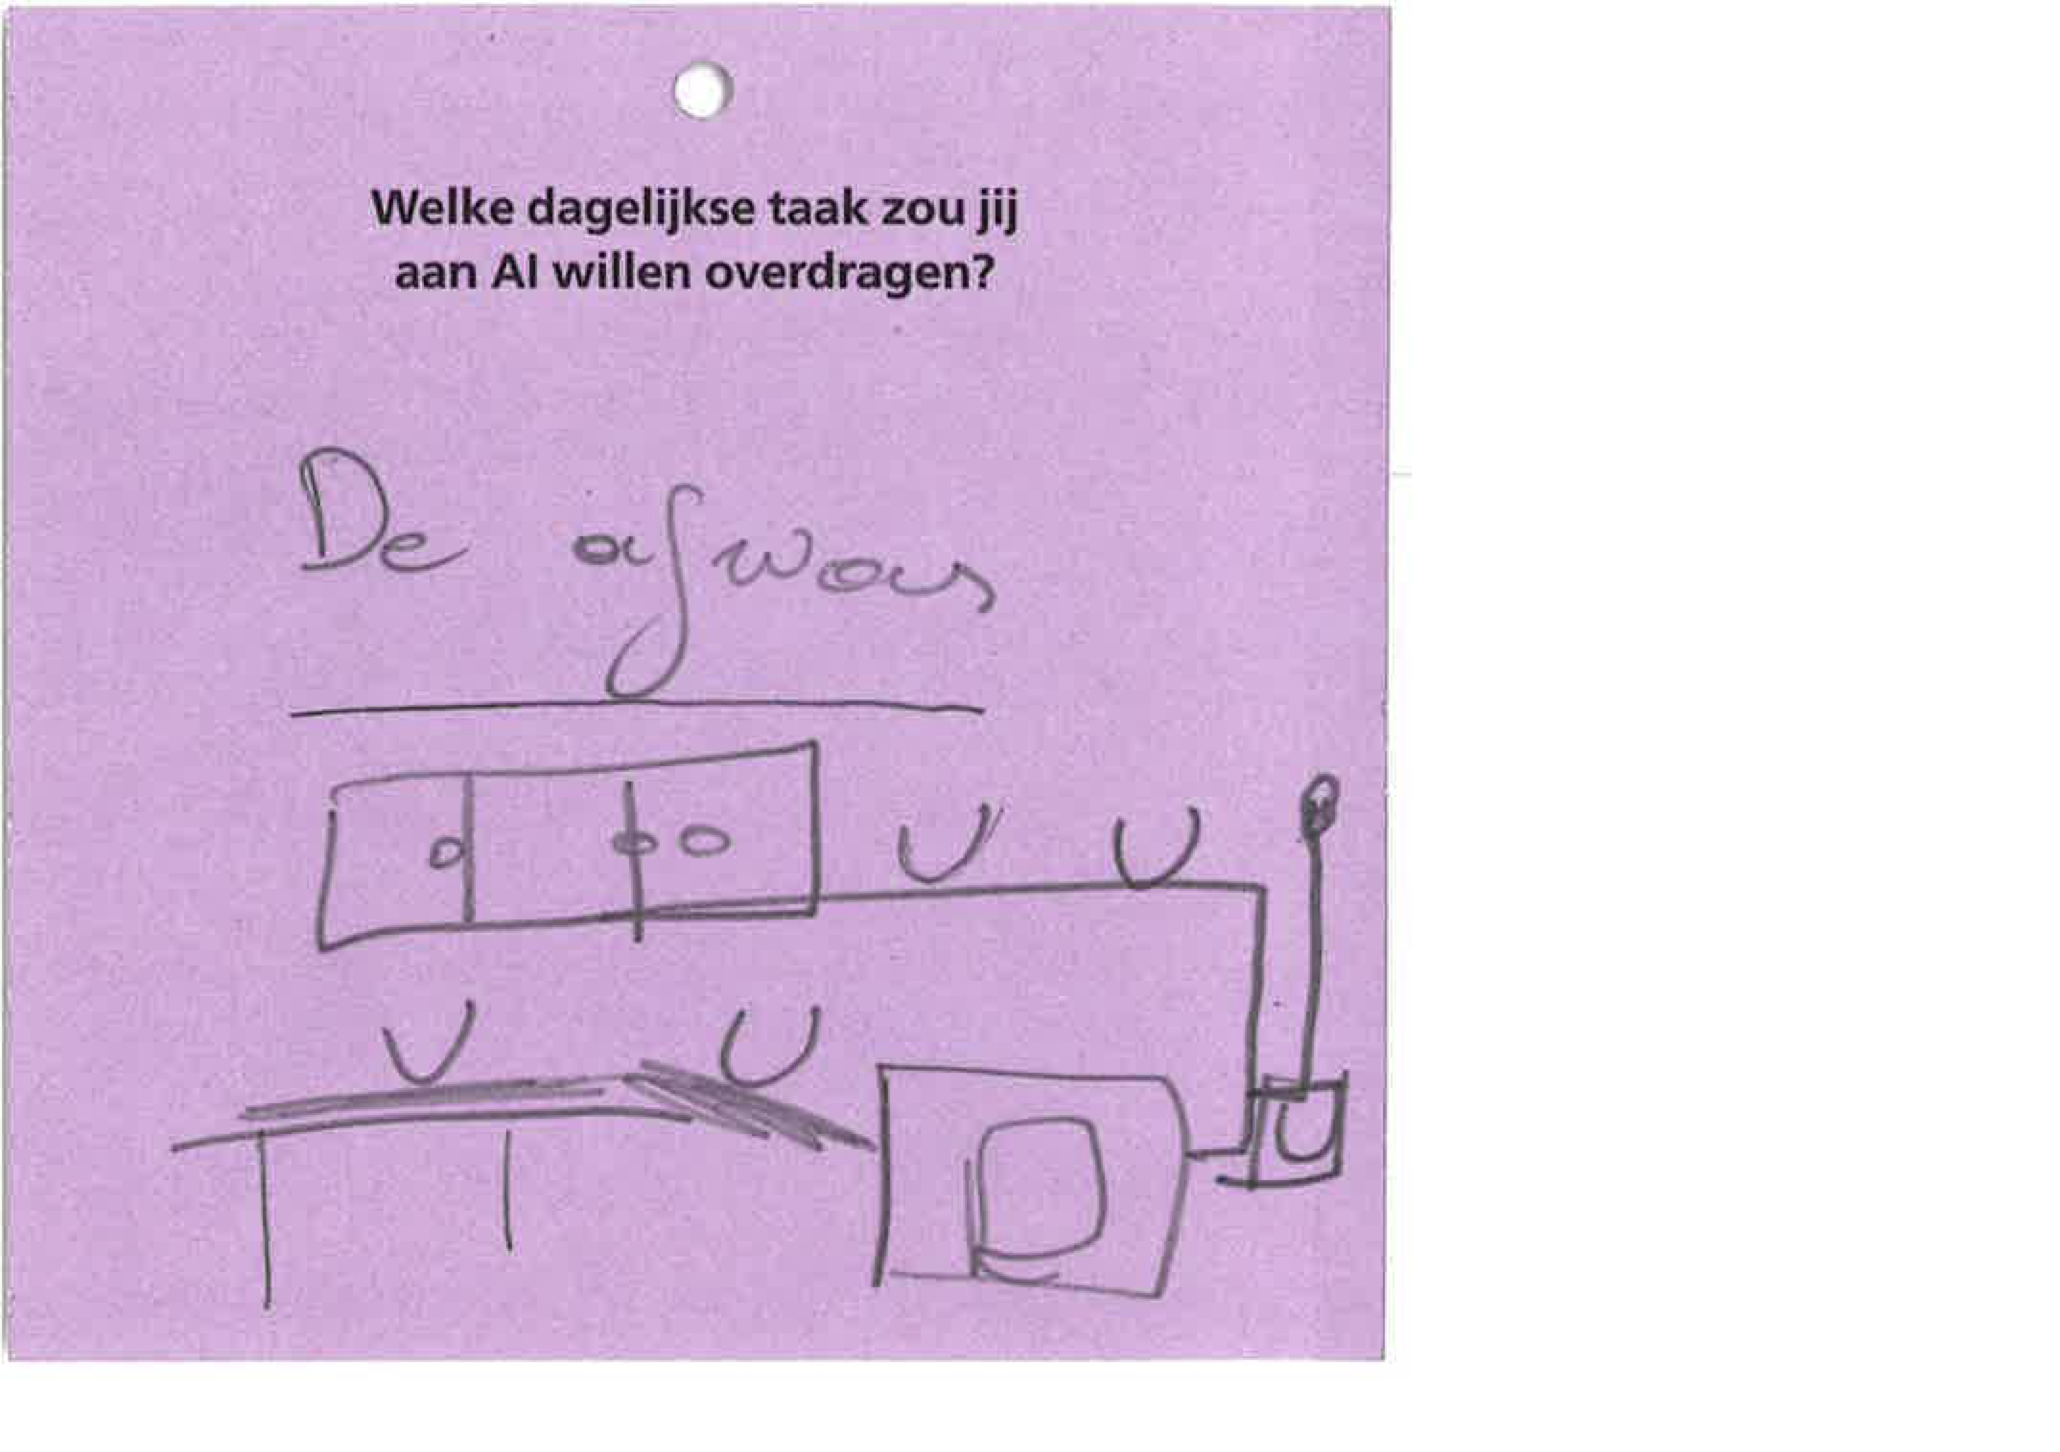 Welke dagelijkse taak zou jij
aan AI willen overdragen?
De afwas